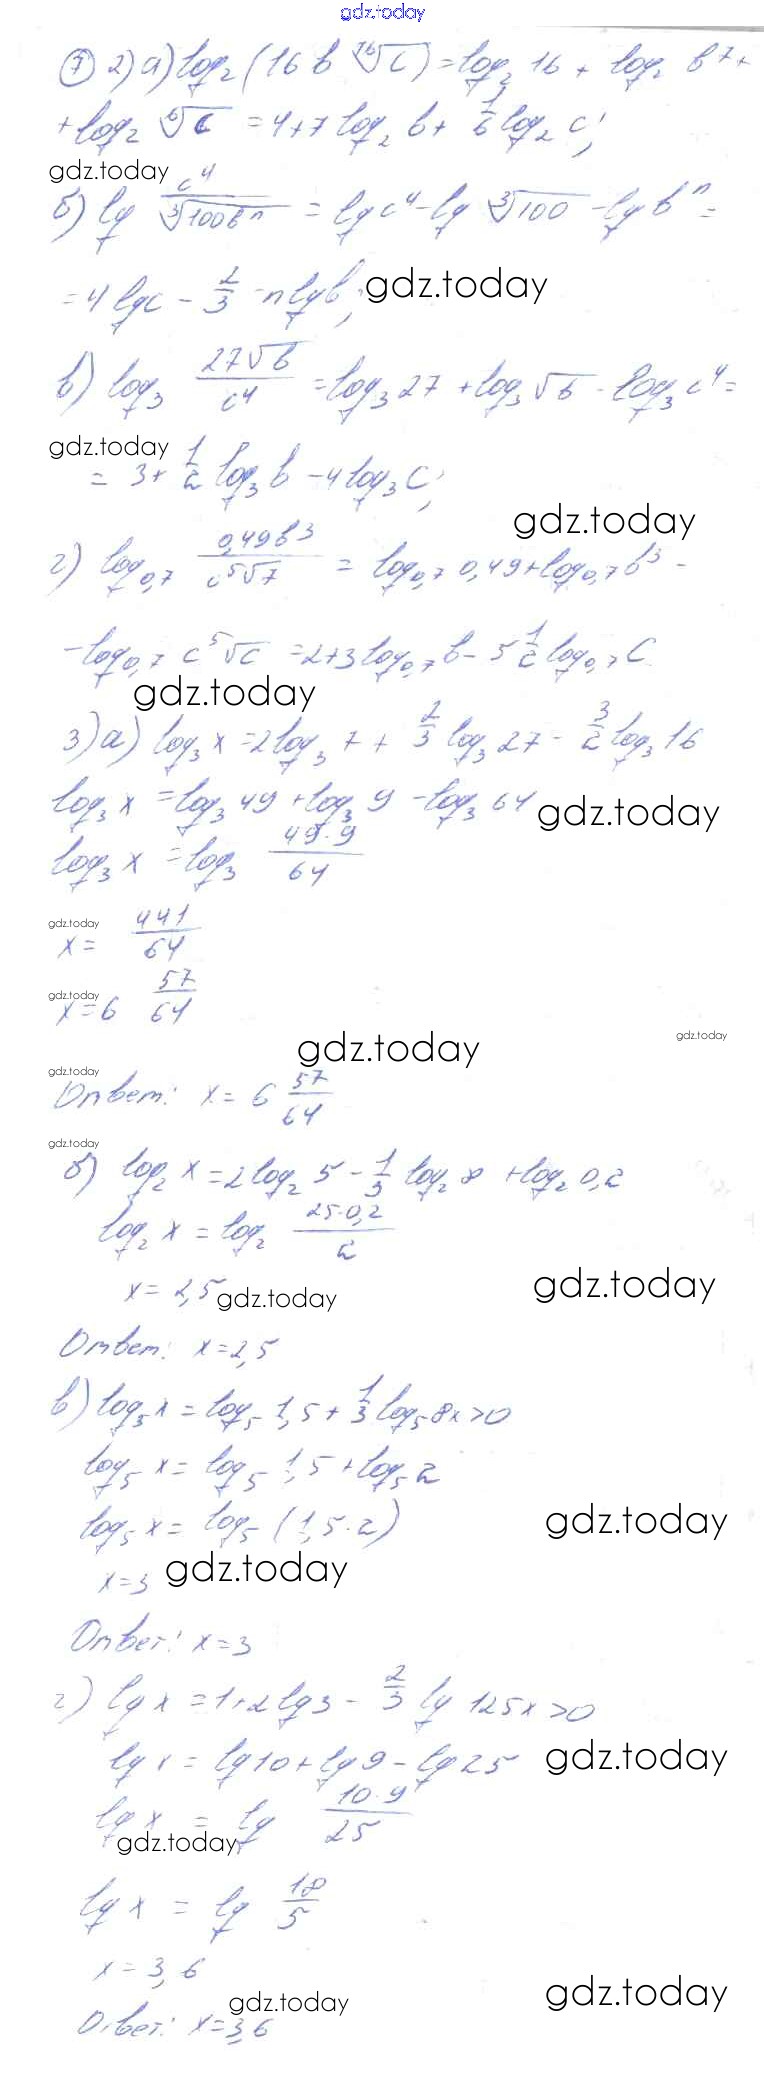 gdz.today
7) 2) а) log₂(16 b ⁷⁶√c) = log₂ 16 + log₂ b⁷ +
+ log₂ ⁶√c = 4 + 7 log₂ b + 1/6 log₂ c;
gdz.today
б) lg c⁴/∛(100bⁿ) = lg c⁴ - lg ∛100 - lg bⁿ =
= 4 lg c - 2/3 - n lg b; gdz.today
в) log₃ 27√b/c⁴ = log₃ 27 + log₃ √b - log₃ c⁴ =
gdz.today
= 3 + 1/2 log₃ b - 4 log₃ c;
gdz.today
г) log₀,₇ 0,49b³/c⁵√7 = log₀,₇ 0,49 + log₀,₇ b³ -
- log₀,₇ c⁵√c = 2 + 3 log₀,₇ b - 5 1/2 log₀,₇ c
gdz.today
3) а) log₃ x = 2 log₃ 7 + 2/3 log₃ 27 - 3/2 log₃ 16
log₃ x = log₃ 49 + log₃ 9 - log₃ 64 gdz.today
log₃ x = log₃ 49·9/64
gdz.today
x = 441/64
gdz.today
x = 6 57/64
gdz.today
gdz.today
gdz.today
Ответ: x = 6 57/64
gdz.today
б) log₂ x = 2 log₂ 5 - 1/3 log₂ 8 + log₂ 0,2
log₂ x = log₂ 25·0,2/2
x = 2,5 gdz.today
gdz.today
Ответ: x = 2,5
в) log₅ x = log₅ 1,5 + 1/3 log₅ 8 x>0
log₅ x = log₅ 1,5 + log₅ 2
log₅ x = log₅ (1,5·2) gdz.today
x = 3 gdz.today
Ответ: x = 3
г) lg x = 1 + 2 lg 3 - 2/3 lg 125 x>0
lg x = lg 10 + lg 9 - lg 25 gdz.today
lg x = lg 10·9/25
gdz.today
lg x = lg 18/5
x = 3,6
gdz.today gdz.today
Ответ: x = 3,6